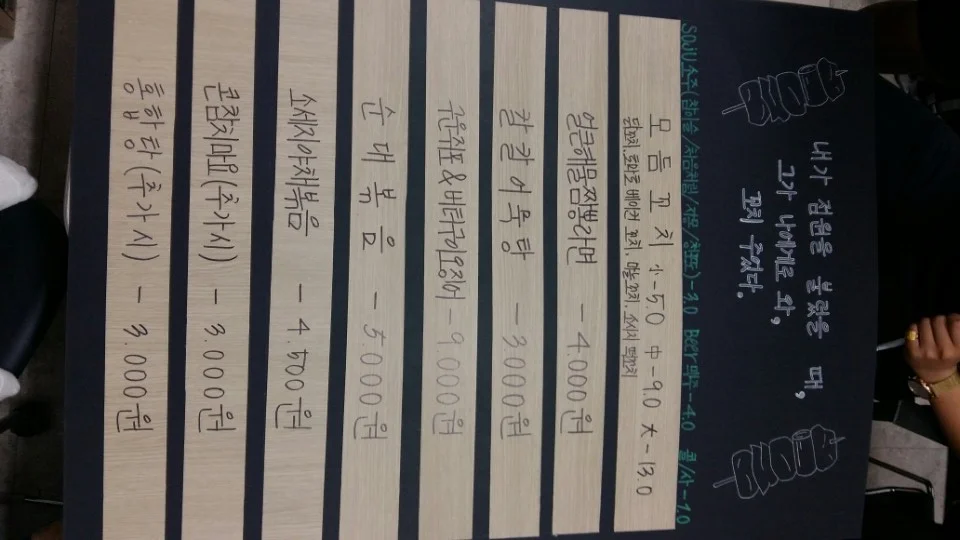 내가 점원을 불렀을 때,
그가 나에게로 와,
꼬치 주었다.
SOJU 소주(참이슬/처음처럼/자몽/청포도)-3.0 Beer 맥주-4.0 콜/사-1.0
모듬꼬치 小-5.0 中-9.0 大-13.0
닭꼬치, 토마토 베이컨 꼬치, 마늘꼬치, 소시지 떡꼬치
얼큰해물짬뽕라면 - 4.000원
칼칼어묵탕 - 3.000원
구운쥐포&버터구이오징어 - 9.000원
순대볶음 - 5.000원
소세지야채볶음 - 4.500원
콘참치마요(추가시) - 3.000원
홍합탕(추가시) - 3.000원